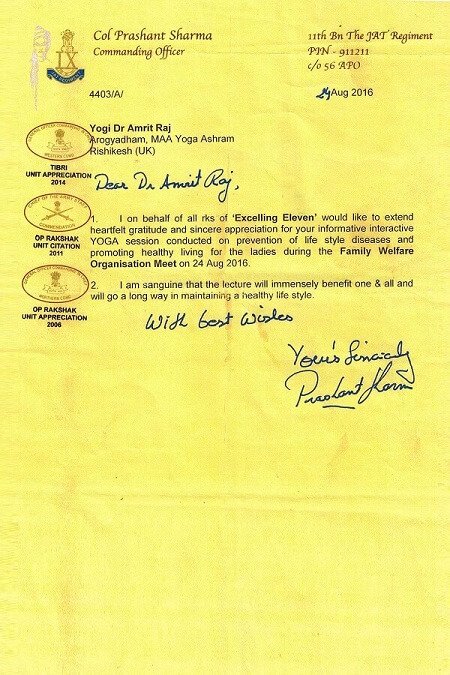 Col Prashant Sharma
Commanding Officer
11th Bn The JAT Regiment
PIN - 911211
c/o 56 APO
4403/A/
29 Aug 2016
Yogi Dr Amrit Raj
Arogyadham, MAA Yoga Ashram
Rishikesh (UK)
TIBRI
UNIT APPRECIATION
2014
Dear Dr Amrit Raj,
OP RAKSHAK
UNIT CITATION
2011
1. I on behalf of all rks of 'Excelling Eleven' would like to extend
heartfelt gratitude and sincere appreciation for your informative interactive
YOGA session conducted on prevention of life style diseases and
promoting healthy living for the ladies during the Family Welfare
Organisation Meet on 24 Aug 2016.
OP RAKSHAK
UNIT APPRECIATION
2006
2. I am sanguine that the lecture will immensely benefit one & all and
will go a long way in maintaining a healthy life style.
With best wishes
Your's Sincerely
Prashant Sharma